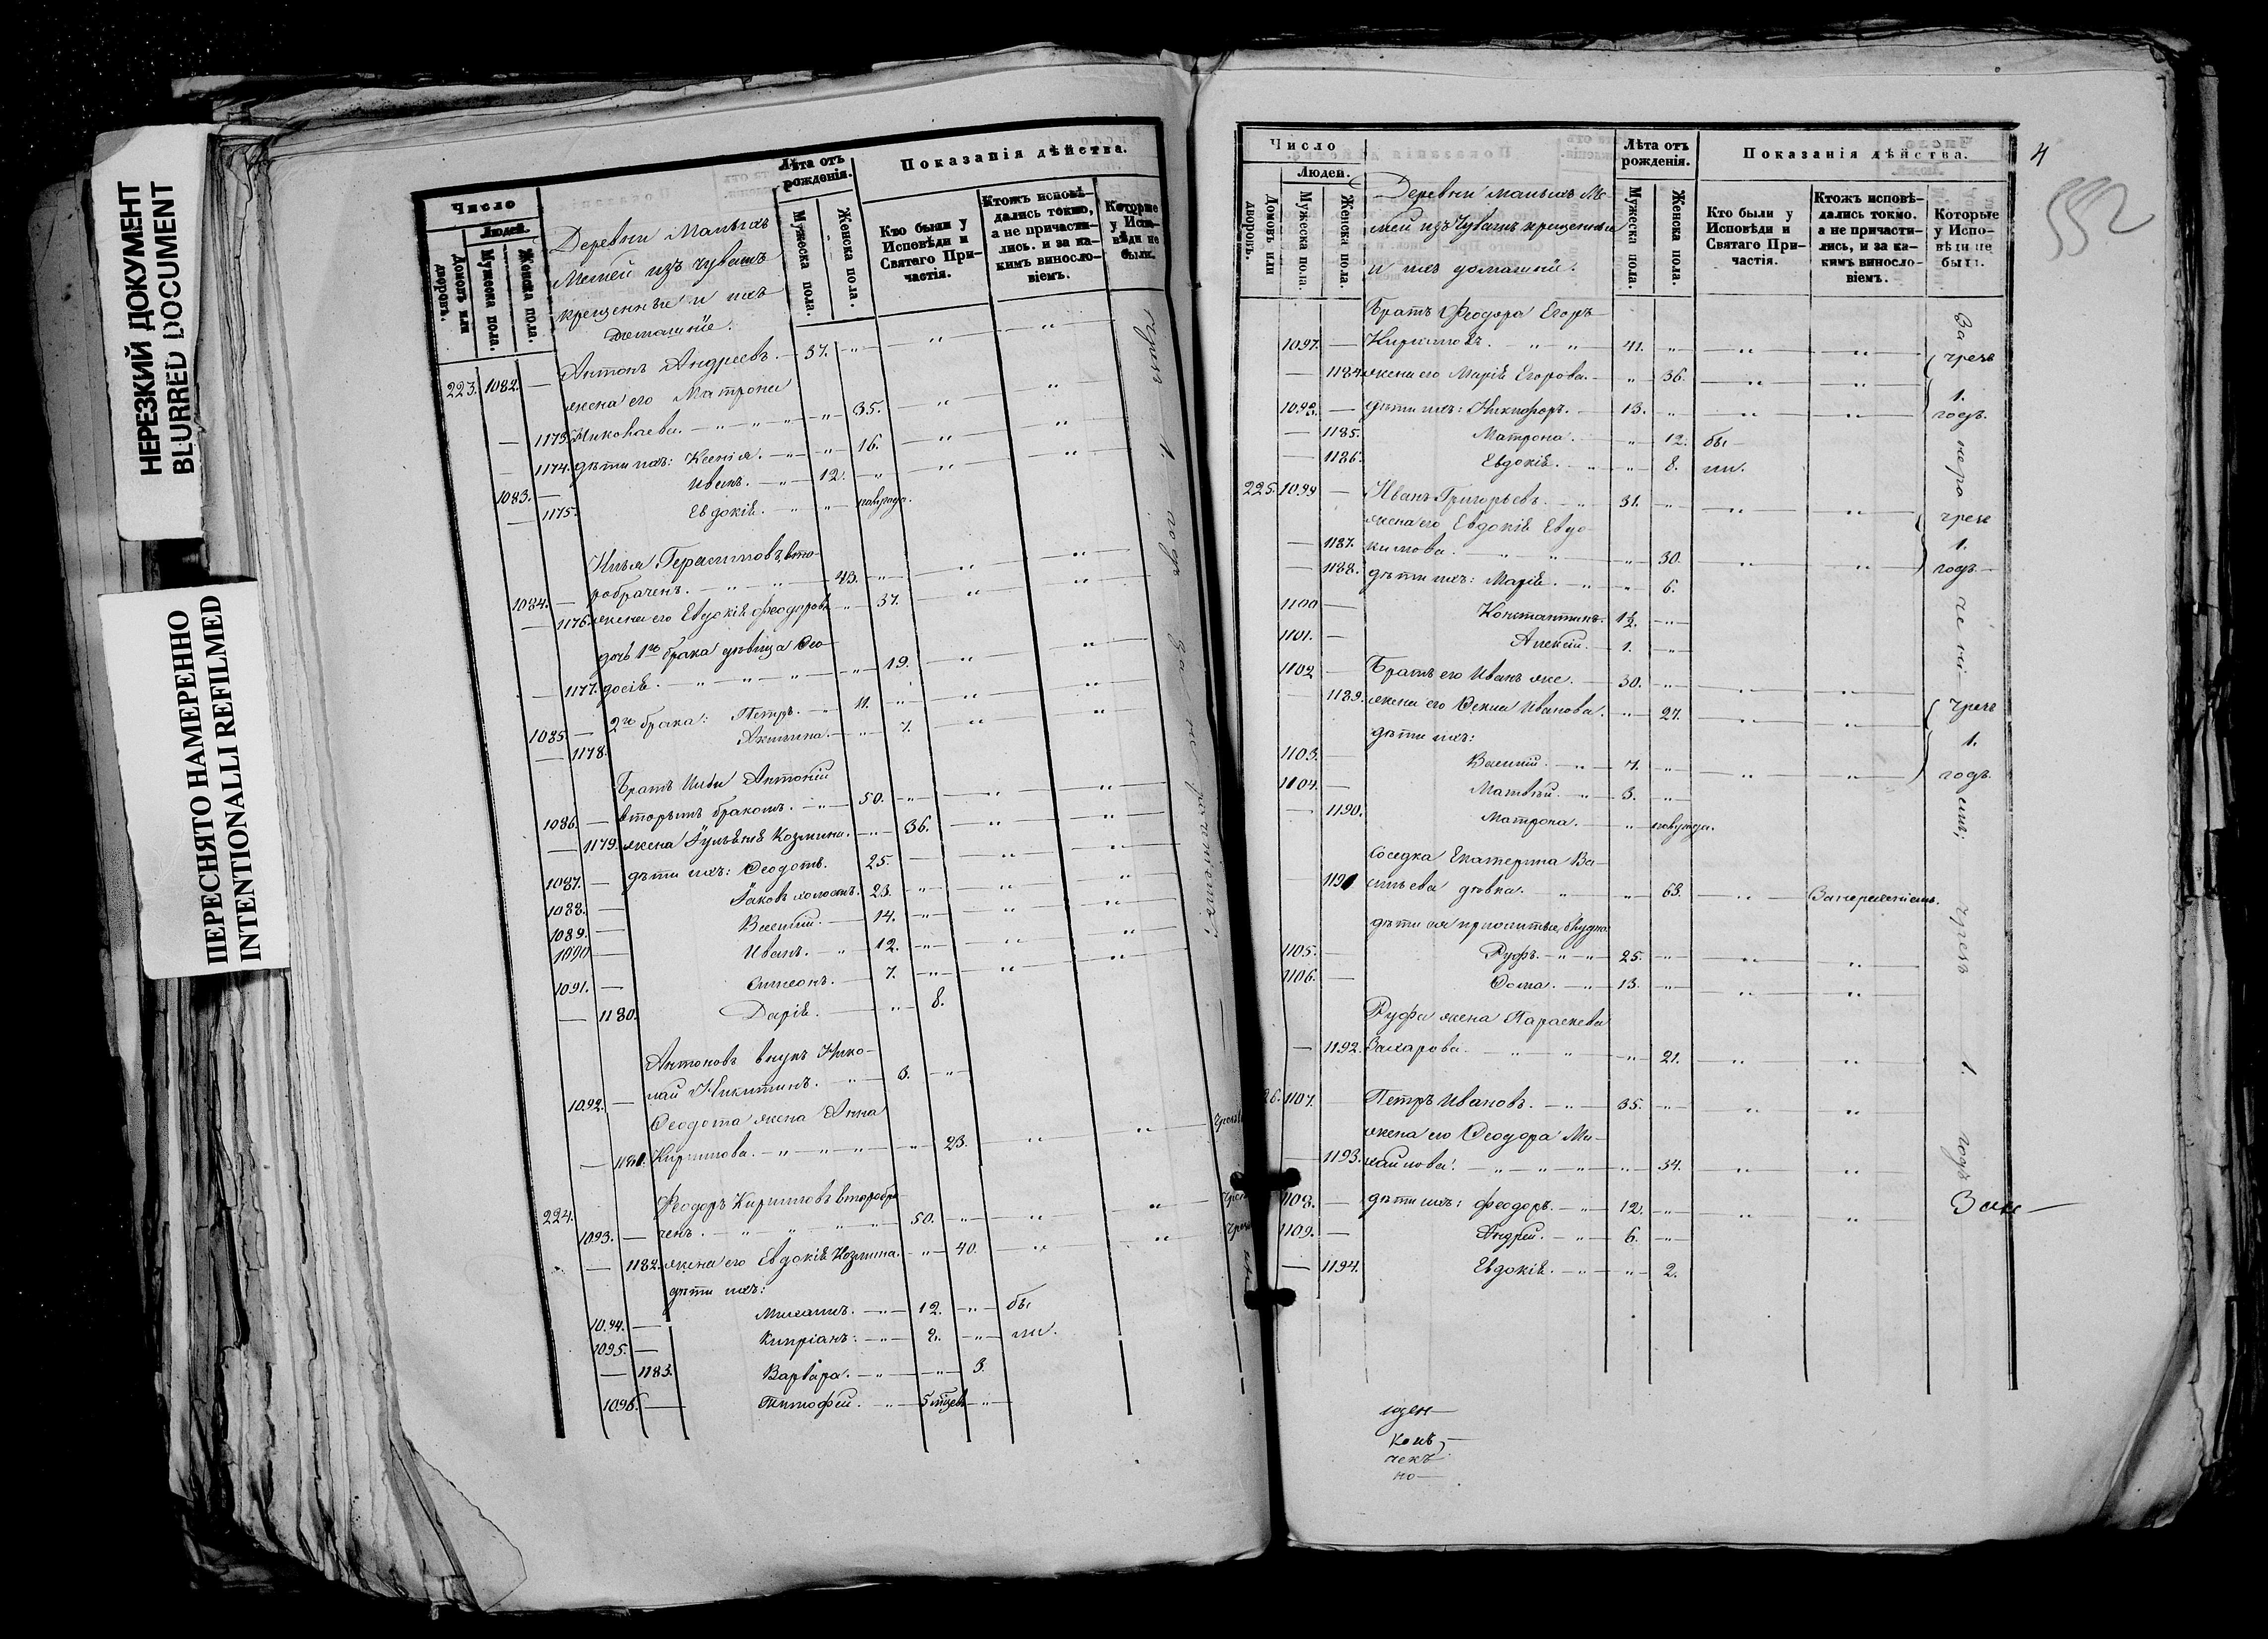 НЕРЕЗКИЙ ДОКУМЕНТ
BLURRED DOCUMENT
ПЕРЕСНЯТО НАМЕРЕННО
INTENTIONALLI REFILMED
Число
Людей.
Домовъ или дворовъ.
Мужеска пола.
Женска пола.
Деревни Малыхъ
Мемей изъ чувашъ
крещенные и ихъ
домашніе.
Лѣта отъ рожденія.
Мужеска пола.
Женска пола.
Показанія дѣйства.
Кто были у Исповѣди и Святаго Причастія.
Ктожъ исповѣдались токмо, а не причастились. и за какимъ винословіемъ.
Которые у Исповѣди не были.
223. 1082. — Антонъ Андреевъ. — 37. — " —
жена его Матрона
— 1173. Николаева. — " — " — 35.
— 1174. дѣти ихъ: Ксенія. — " — " — 16.
1083. — Иванъ. — " — 12. — "
— 1175. Евдокія. — " — "
Илья Герасимовъ, вто-
1084. — роброченъ. — " — " — 43. — " —
— 1176. жена его Евдокія Феодорова — " — 37.
дочь 1го брака дѣвица Ѳео-
— 1177. досія. — " — " — " — 19.
1085. — 2го брака: Петръ. — " 11. — " —
— 1178. Акилина. — " — 7.
Братъ Ильи Антоній
1086. — вторымъ бракомъ. — " — 50. — " —
— 1179. жена Іульянія Козмина. — " — 36.
1087. — дѣти ихъ: Ѳеодотъ. 25. —
1088. — Іаковъ холостъ. 23. — " —
1089. — Василій. — 14. — " —
1090 — Иванъ. — " 12. — " —
1091. — Симеонъ. — 7. — " —
— 1180. Дарія. — " — 8.
Антоновъ внукъ Нико-
1092. — лай Никитинъ. — " — 3. — " —
Ѳеодота жена Анна
— 1181. Кирилова. — " — " — " — 23.
224. Феодоръ Кириловъ второбра-
1093. — ченъ. — " " " 50. — " —
— 1182. жена его Евдокія Козмина. — " — 40.
дѣти ихъ:
1094. — Михаилъ. — " — 12. — " — бы
1095. — Кипріанъ: — " — 2. — " — ли.
— 1183. Варвара. — " — " — 3.
1096. — Тимофей. — " — 5 мѣсев — " —
Число
Людей.
Домовъ или дворовъ.
Мужеска пола.
Женска пола.
Деревни малыхъ Ме-
мей изъ Чувашъ крещенные
и ихъ домашніе.
Лѣта отъ рожденія.
Мужеска пола.
Женска пола.
Показанія дѣйства.
Кто были у Исповѣди и Святаго Причастія.
Ктожъ исповѣдались токмо. а не причастились, и за какимъ винословіемъ.
Которые у Исповѣди не были.
4
552
Братъ Феодора Егоръ
1097. — Кириловъ. — " — " — 41. — " —
— 1184. жена его Марія Егорова. — " — 36.
1098. — дѣти ихъ: Никифоръ. — 13. — " —
— 1185. Матрона. — " — 12. бы —
— 1186. Евдокія. — " — " — 8. ли.
225. 1099 — Иванъ Григорьевъ. — " 31. — " —
жена его Евдокія Евдо-
— 1187. кимова. — " — " — 30.
— 1188. дѣти ихъ: Марія. — " — " — 6.
1100 — Константинъ. 1½. — " —
1101. — Алексій. — 1. — " —
1102 — Братъ его Иванъ же. — 30. — " —
— 1189. жена его Ѳекла Иванова. — " — 27.
дѣти ихъ:
1103. — Василій. — " — 7. — " —
1104. — Матвѣй. — " — 3. — " —
— 1190. Матрона. — " —
чрезъ 1. годъ.
чрезъ 1. годъ —
чрезъ 1. годъ.
Соседка Екатерина Ва-
— 1191 сильева дѣвка. — " — " — 63.
дѣти ея прижитые блудно
1105. — Руфъ. — " — " — 25. — " —
1106. — Ѳома. — " — 13. — " —
Руфа жена Параскева
— 1192. Захарова. — " — " — 21.
1107. — Петръ Ивановъ. — " — 35. — " —
жена его Ѳеодора Ми-
— 1193. хайлова. — " — " — " — 34.
1108. — дѣти ихъ: Феодоръ. — " — 12. — " —
1109. — Андрей. — " — 6. — " —
— 1194. Евдокія. — " — " — 2.